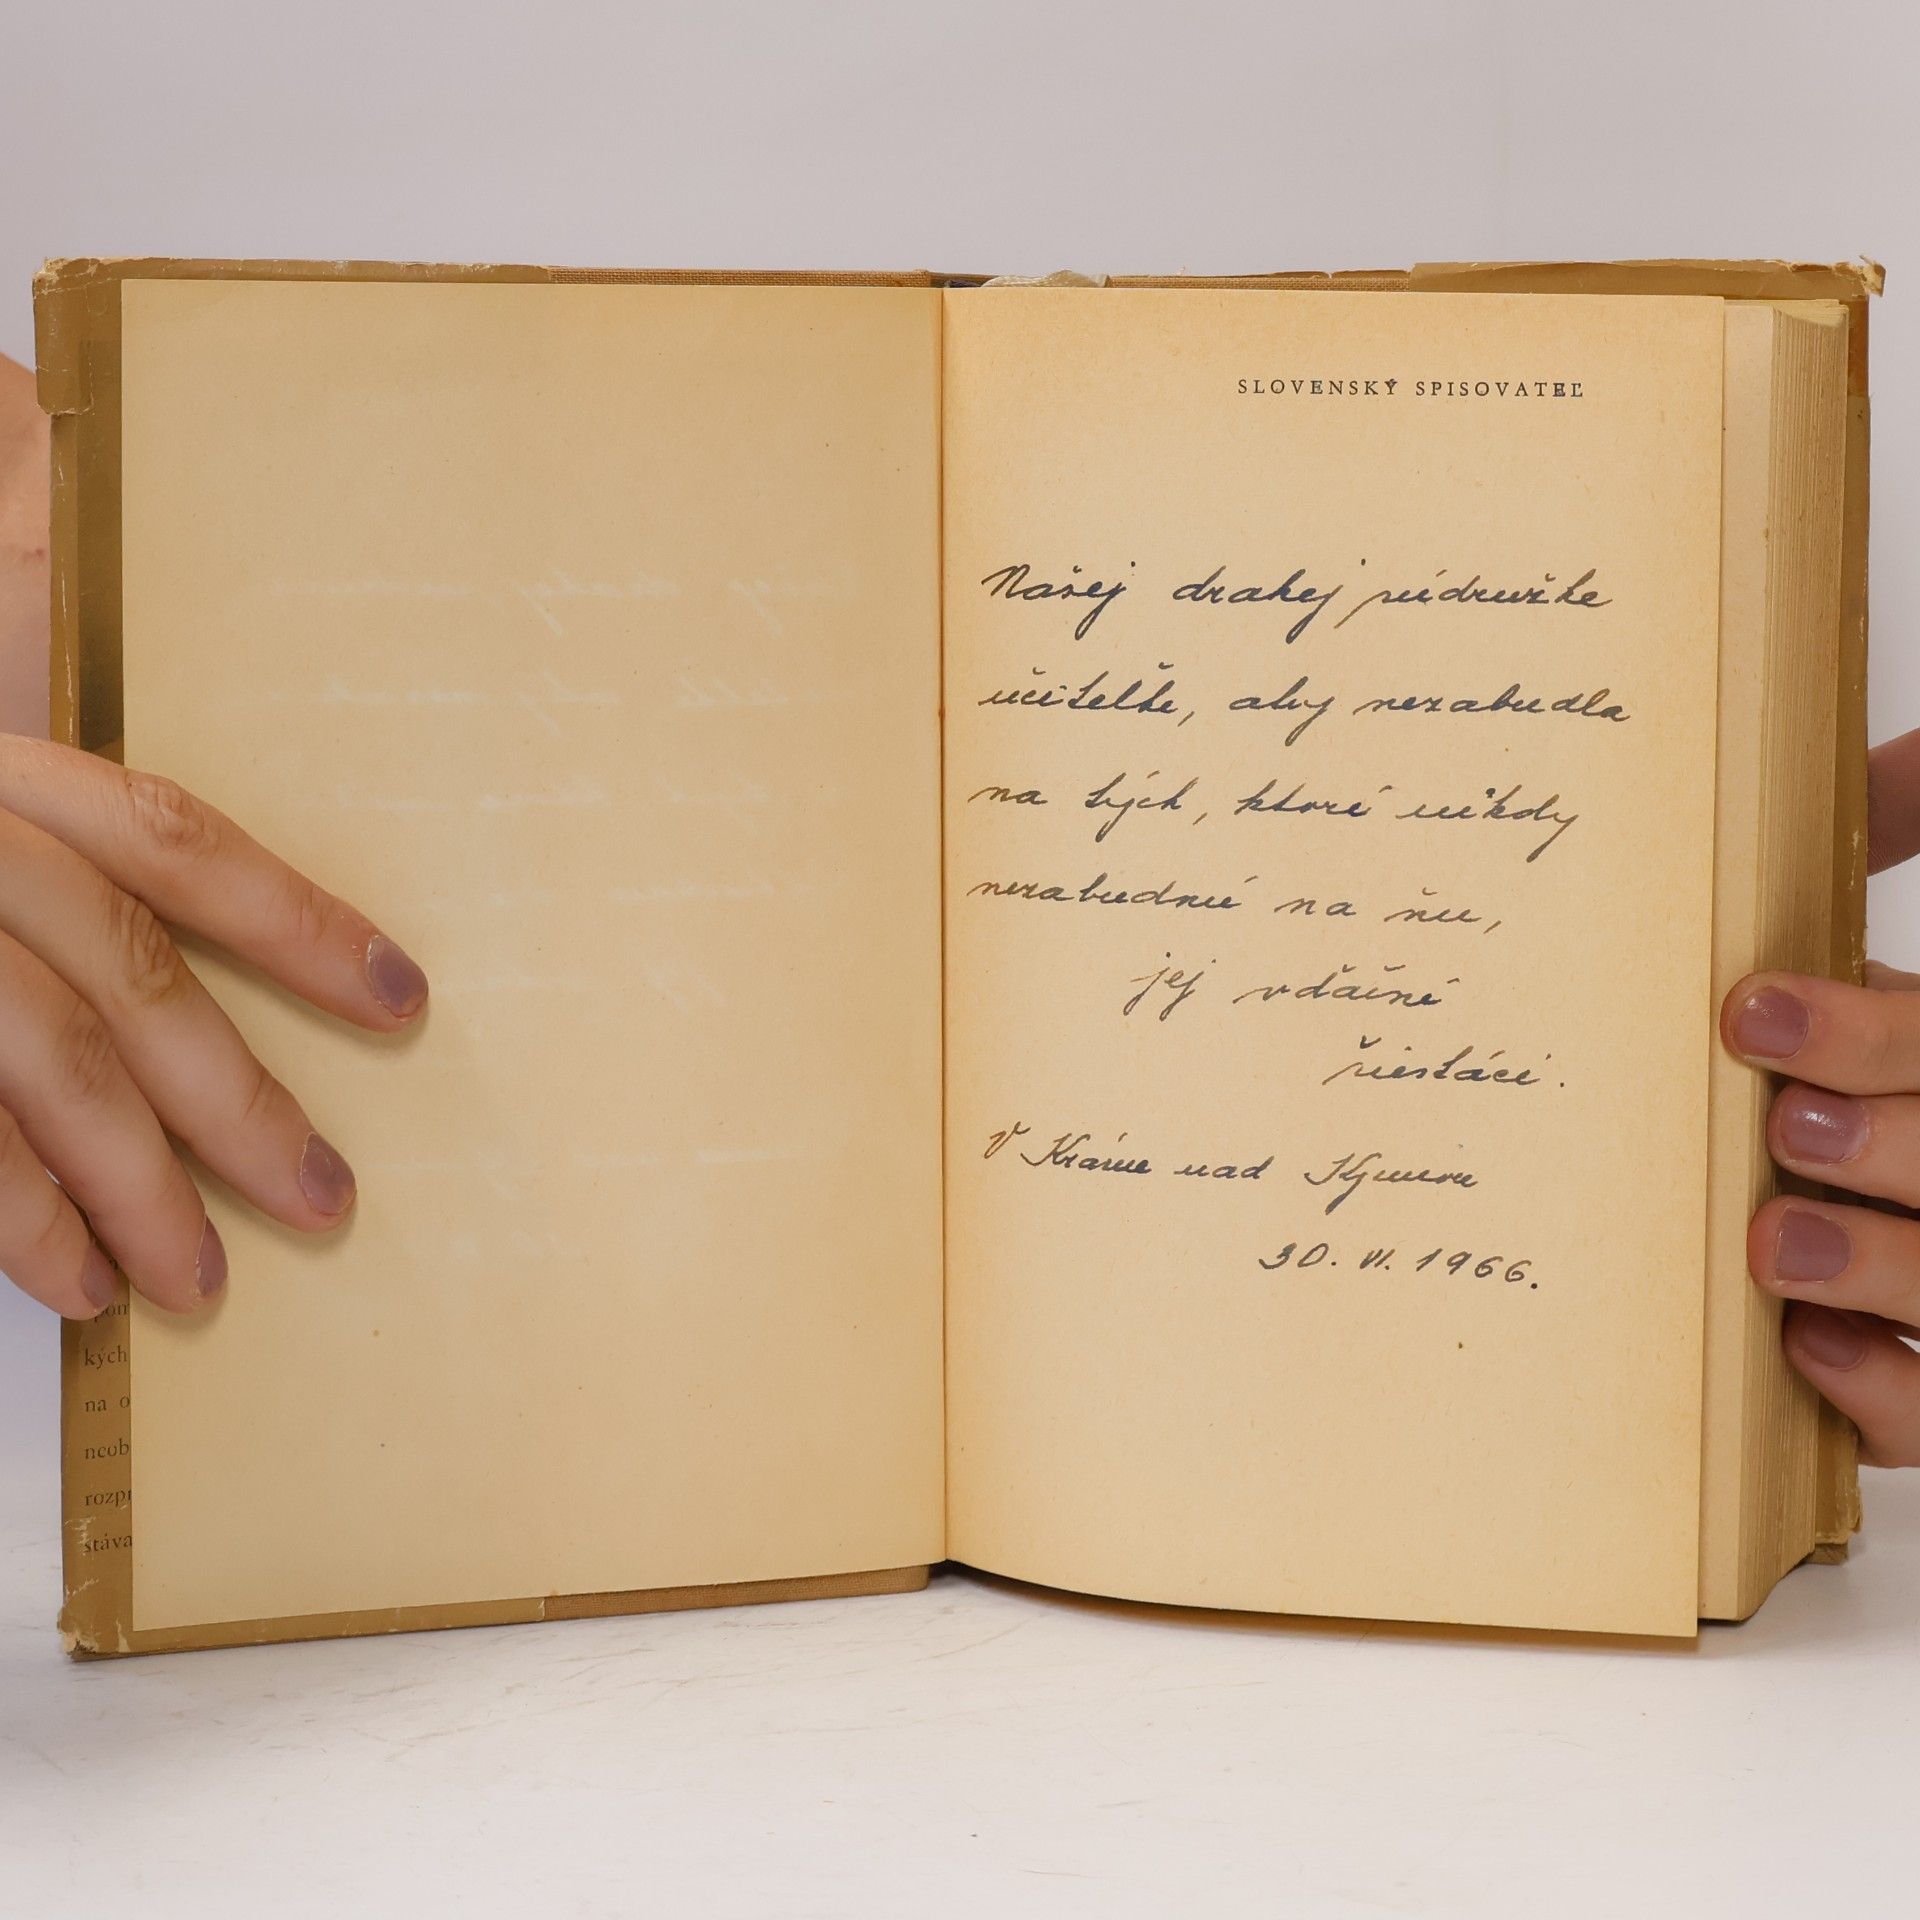 pom
kých
na o
neob
rozpr
stáva
SLOVENSKÝ SPISOVATEĽ
Našej drahej súdružke
učiteľke, aby nezabudla
na tých, ktorí nikdy
nezabudnú na ňu,
jej vďační
šiestáci.
V Krásne nad Kysucou
30. VI. 1966.